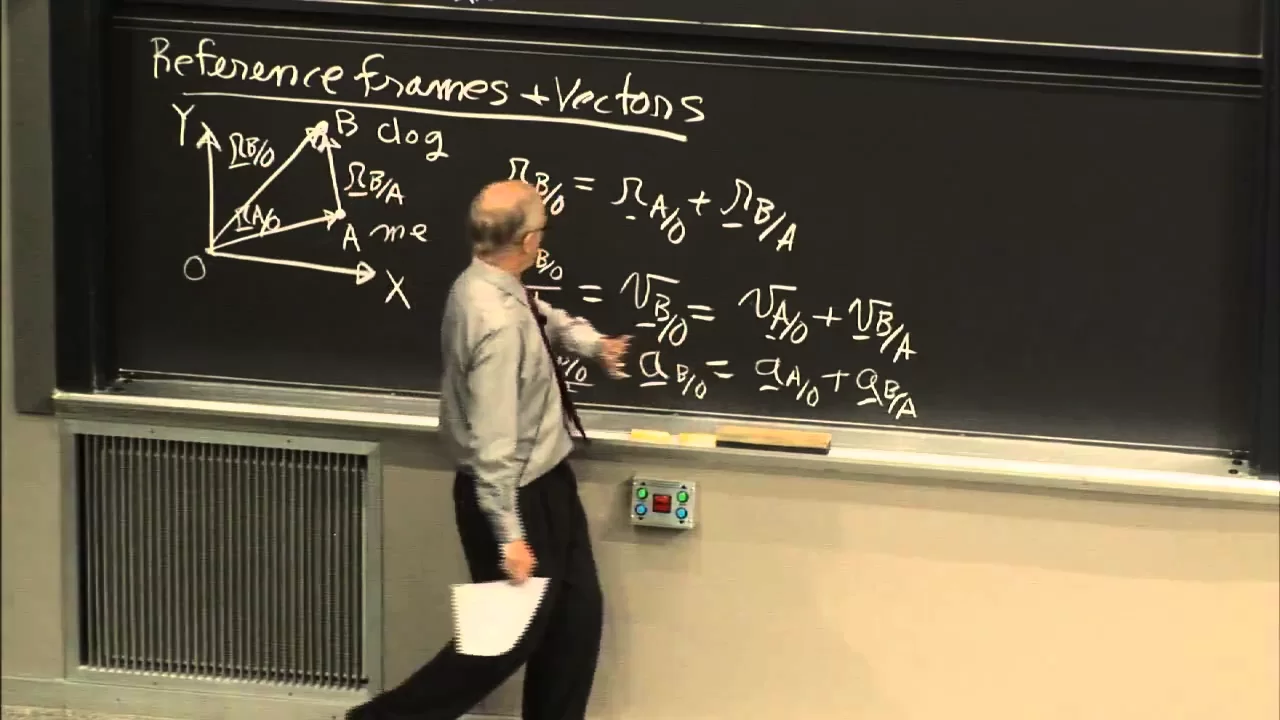 Reference frames + Vectors
Y
B dog
r B/O
r B/A
r A/O
A me
O
X
r B/O = r A/O + r B/A
B/O = v B/O = v A/O + v B/A
/O a B/O = a A/O + a B/A